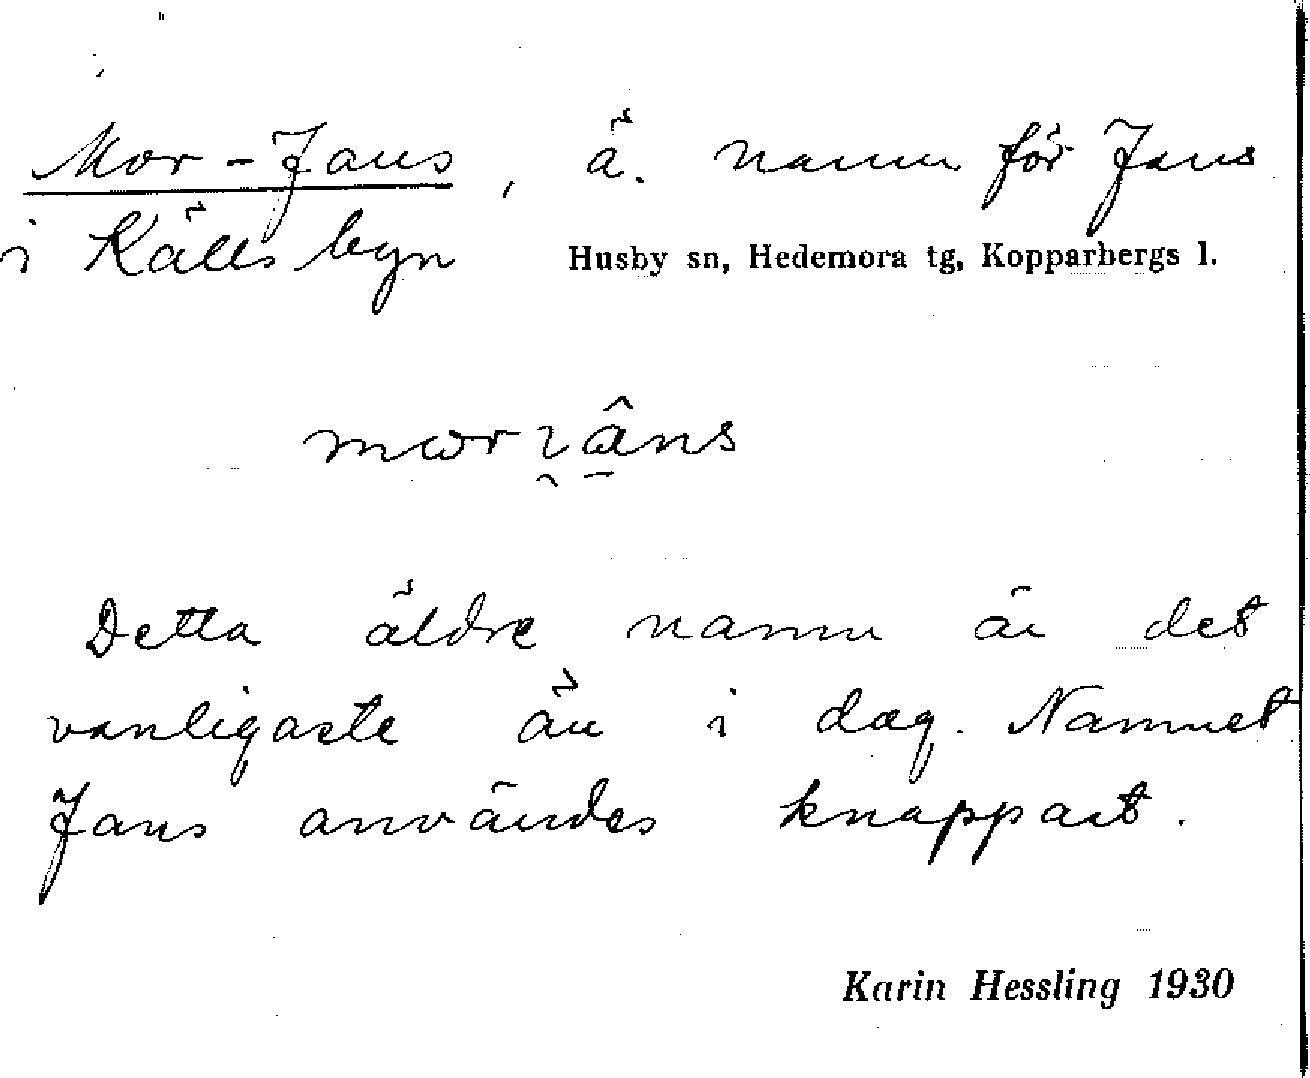 Mor-Jans, ä. namn för Jans
i Källsbyn Husby sn, Hedemora tg, Kopparbergs l.
Detta äldre namn är det
vanligaste än i dag. Namnet
Jans användes knappast.
Karin Hessling 1930